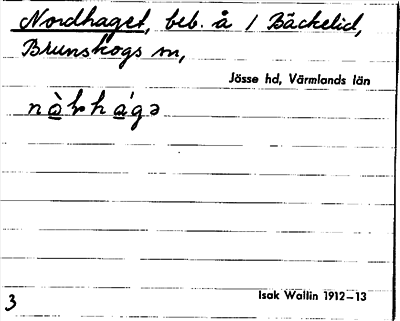 Nordhaget, beb. å 1 Bäckelid,
Brunskogs sn,
Jösse hd, Värmlands län
3
Isak Wallin 1912–13